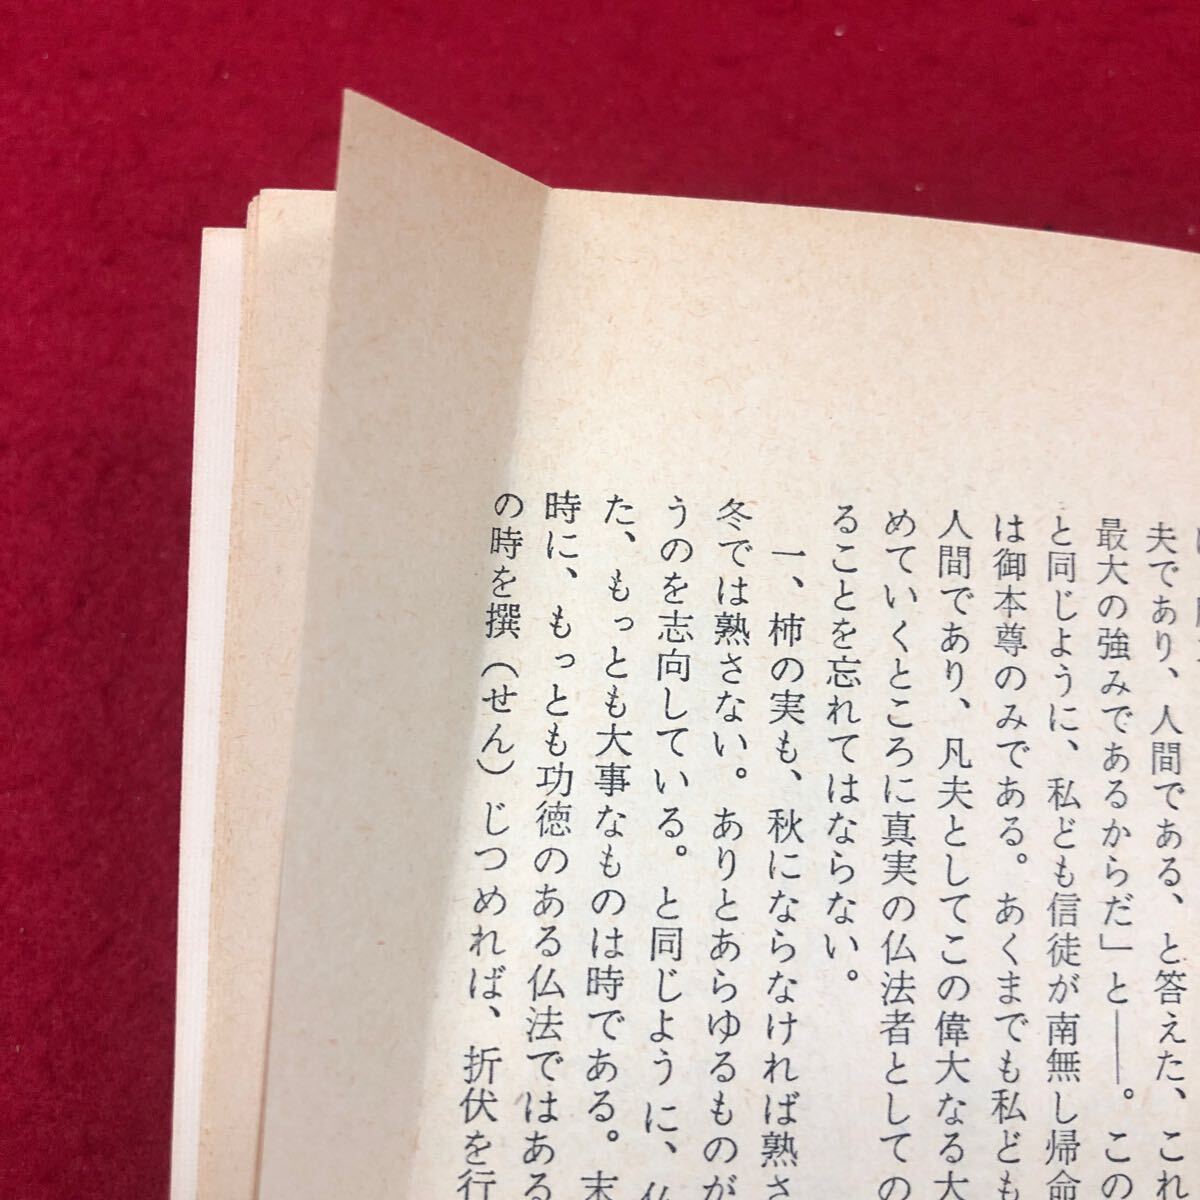 夫であり、人間である、と答えた、これ
最大の強みであるからだ」と――。この
と同じように、私ども信徒が南無し帰命
は御本尊のみである。あくまでも私ども
人間であり、凡夫としてこの偉大なる大
めていくところに真実の仏法者としての
ることを忘れてはならない。
一、柿の実も、秋にならなければ熟さ
冬では熟さない。ありとあらゆるものが
うのを志向している。と同じように、仏
た、もっとも大事なものは時である。末
時に、もっとも功徳のある仏法ではある
の時を撰（せん）じつめれば、折伏を行